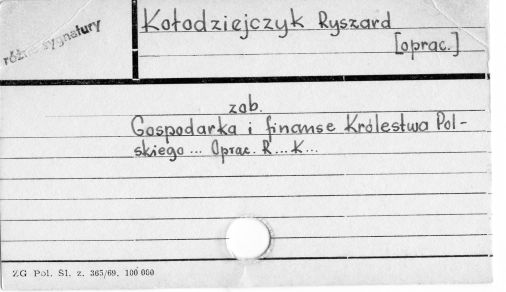 różne sygnatury
Kołodziejczyk Ryszard
[oprac.]
zob.
Gospodarka i finanse Królestwa Pol-
skiego ... Oprac. R... K...
ZG Pol. Sl. z. 365/69. 100 000